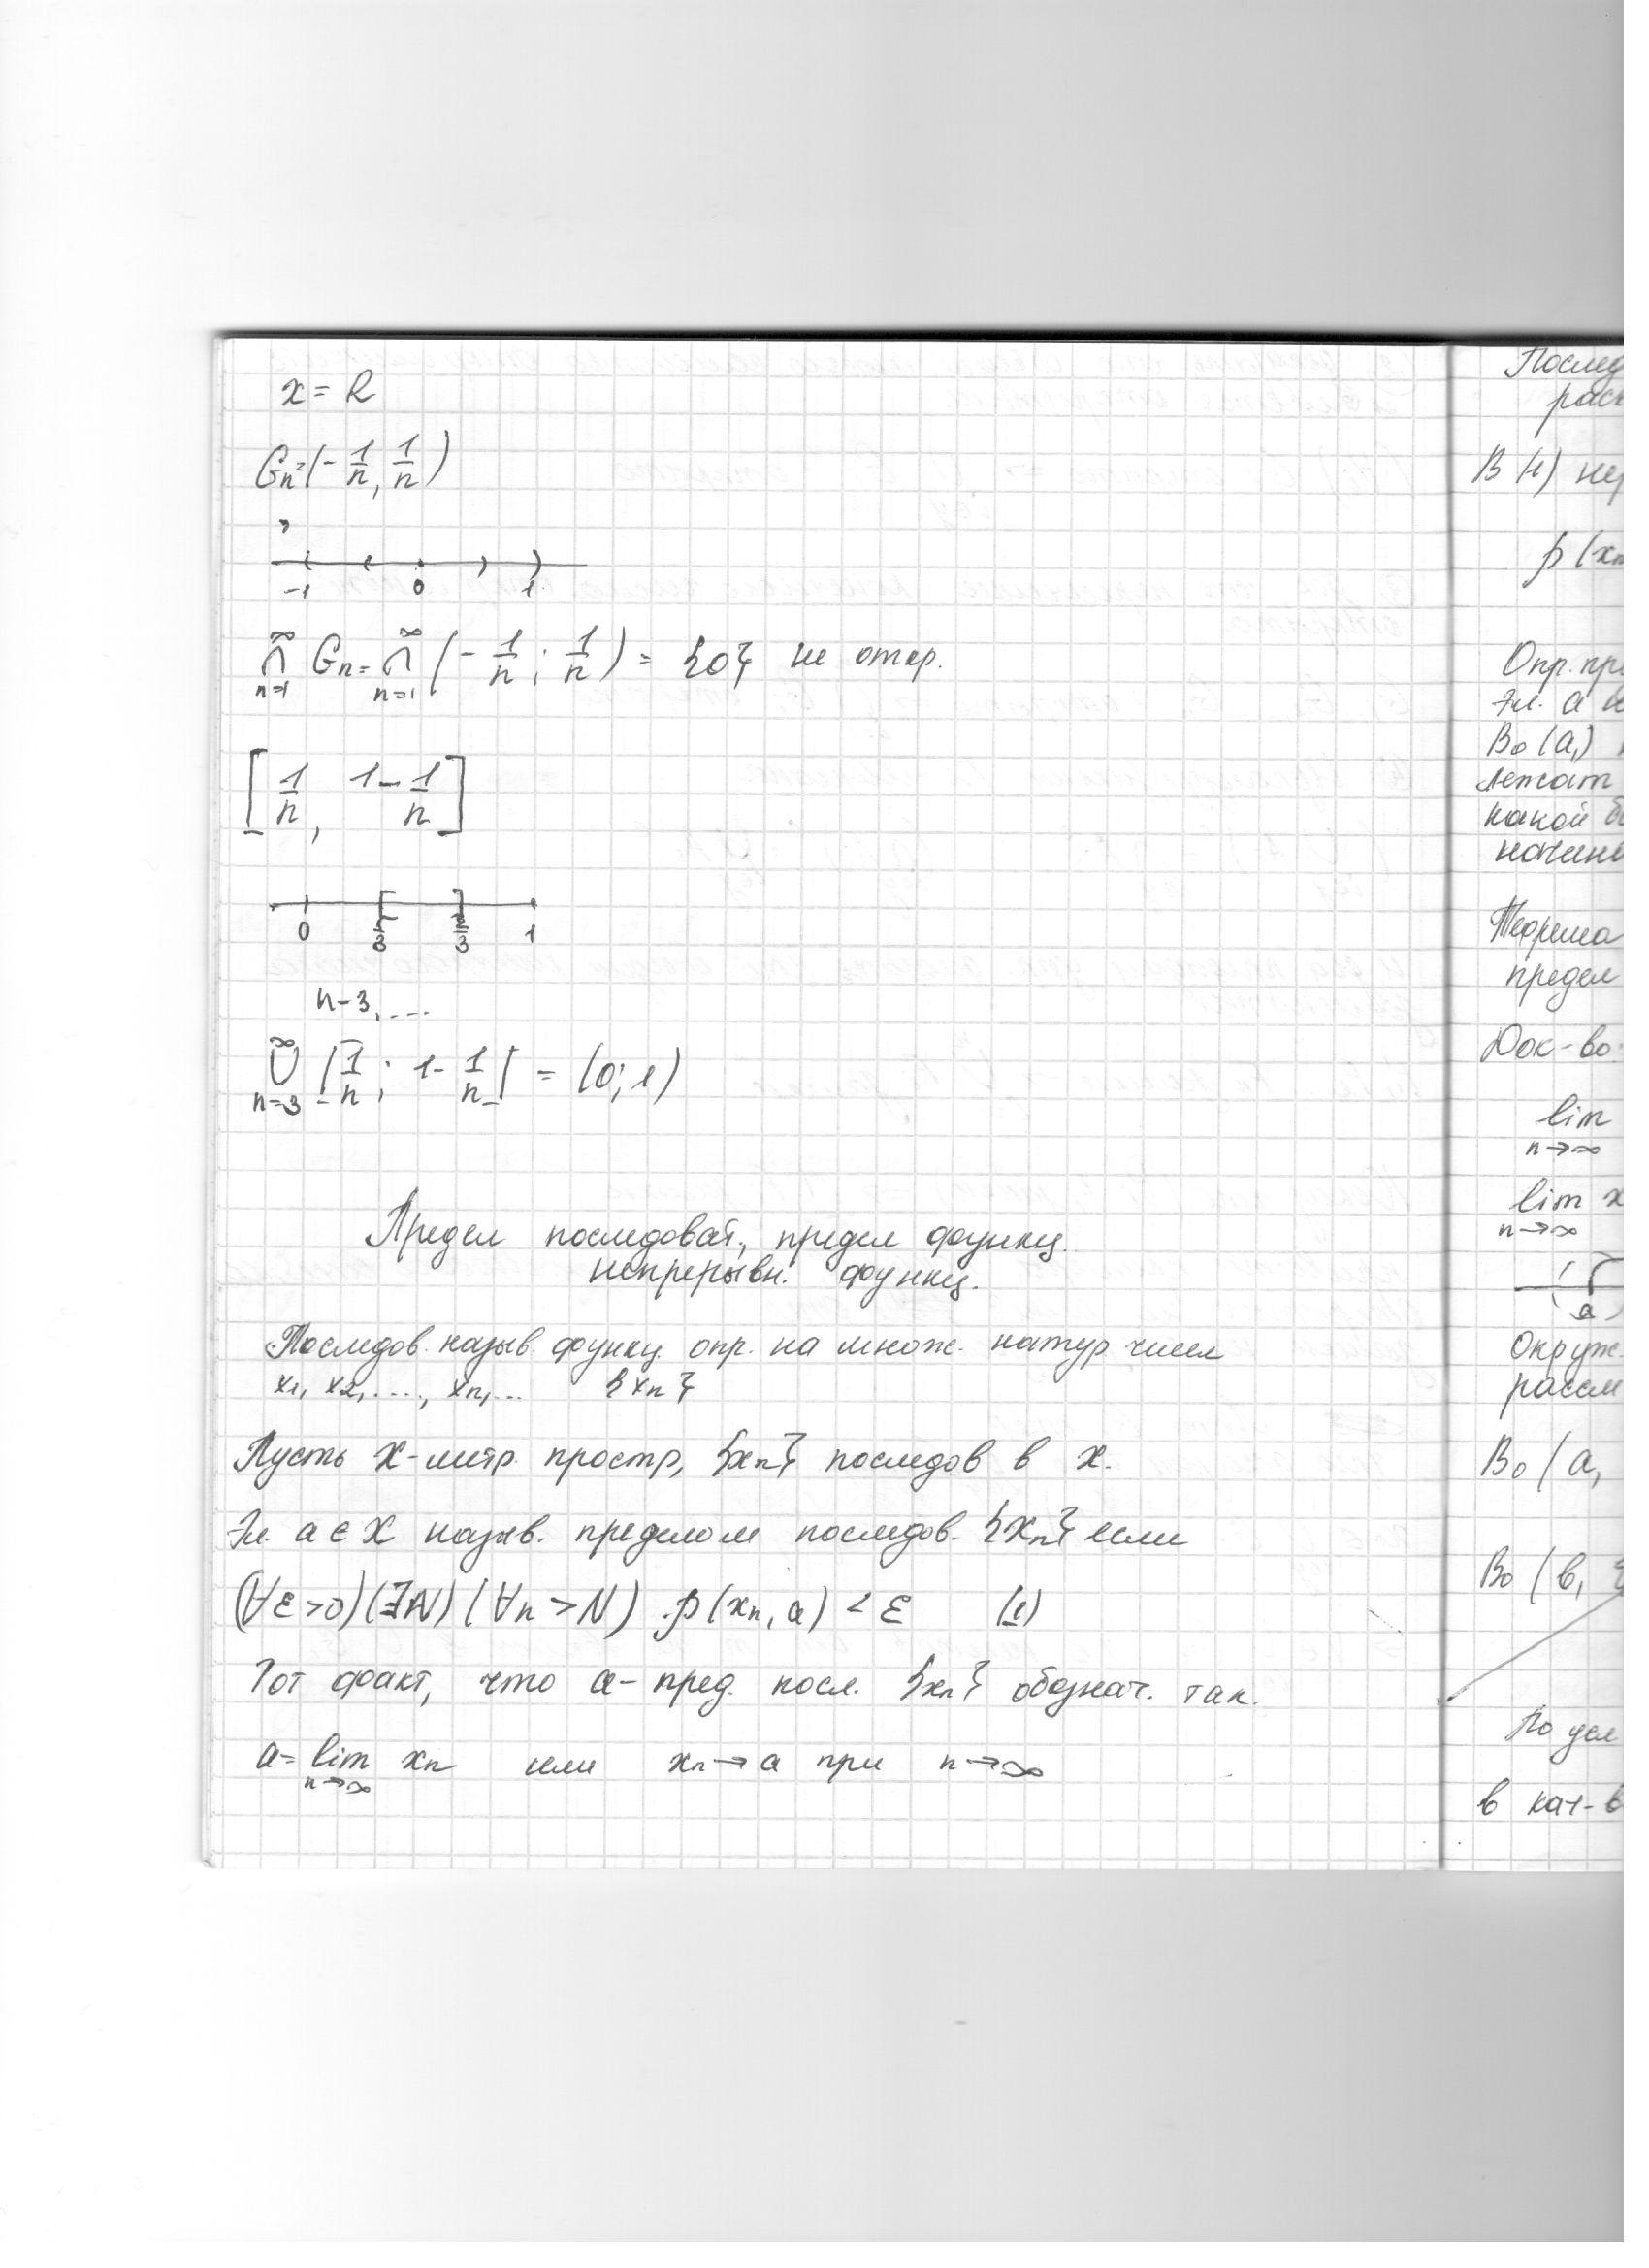 x = R
Gₙ = (-1/n, 1/n)
-1 0 1
∩ₙ₌₁^∞ Gₙ = ∩ₙ₌₁^∞ (-1/n ; 1/n) = {0} не откр.
[1/n, 1-1/n]
0 1/3 2/3 1
n-3, ....
∪ₙ₌₃^∞ [1/n ; 1-1/n] = (0; 1)
Предел последоват., предел функц.
непрерывн. функц.
Последов. назыв. функц. опр. на множ. натур чисел
x₁, x₂, ...., xₙ, ... {xₙ}
Пусть X-метр. простр, {xₙ} последов в X.
Эл. a ∈ X назыв. пределом последов. {xₙ} если
(∀ε>0)(∃N)(∀n>N) ρ(xₙ, a) < ε (1)
Тот факт, что a- пред. посл. {xₙ} обознач. так.
a = lim xₙ или xₙ → a при n → ∞
n→∞
Послед
раск
В (1) не
ρ(xₙ
Опр. пр
Эл. a
B₀(a,)
лежат
какой б
начин
Теорема
предел
Док-во
lim
n→∞
lim x
n→∞
a
Окруж.
рассм
B₀(a,
B₀(b,
По усл
в кач-в